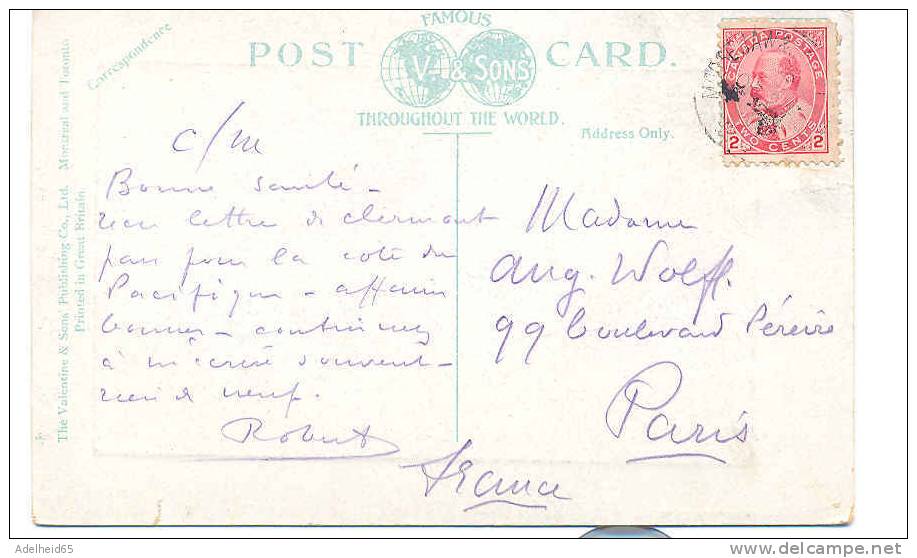 FAMOUS
POST CARD.
V & SONS
THROUGHOUT THE WORLD.
Correspondence
Address Only.
The Valentine & Sons Publishing Co., Ltd. Montreal and Toronto
Printed in Great Britain.
CANADA POSTAGE
2 TWO CENTS 2
c/m
Bonne santé -
reçu lettre de clermont
pars pour la cote du
Pacifique - affaires
bonnes - continuez
à m'écrire souvent -
rien de neuf.
Robert
Madame
Aug. Wolff.
99 boulevard Péreire
Paris
France
Adelheid65
www.delcampe.net